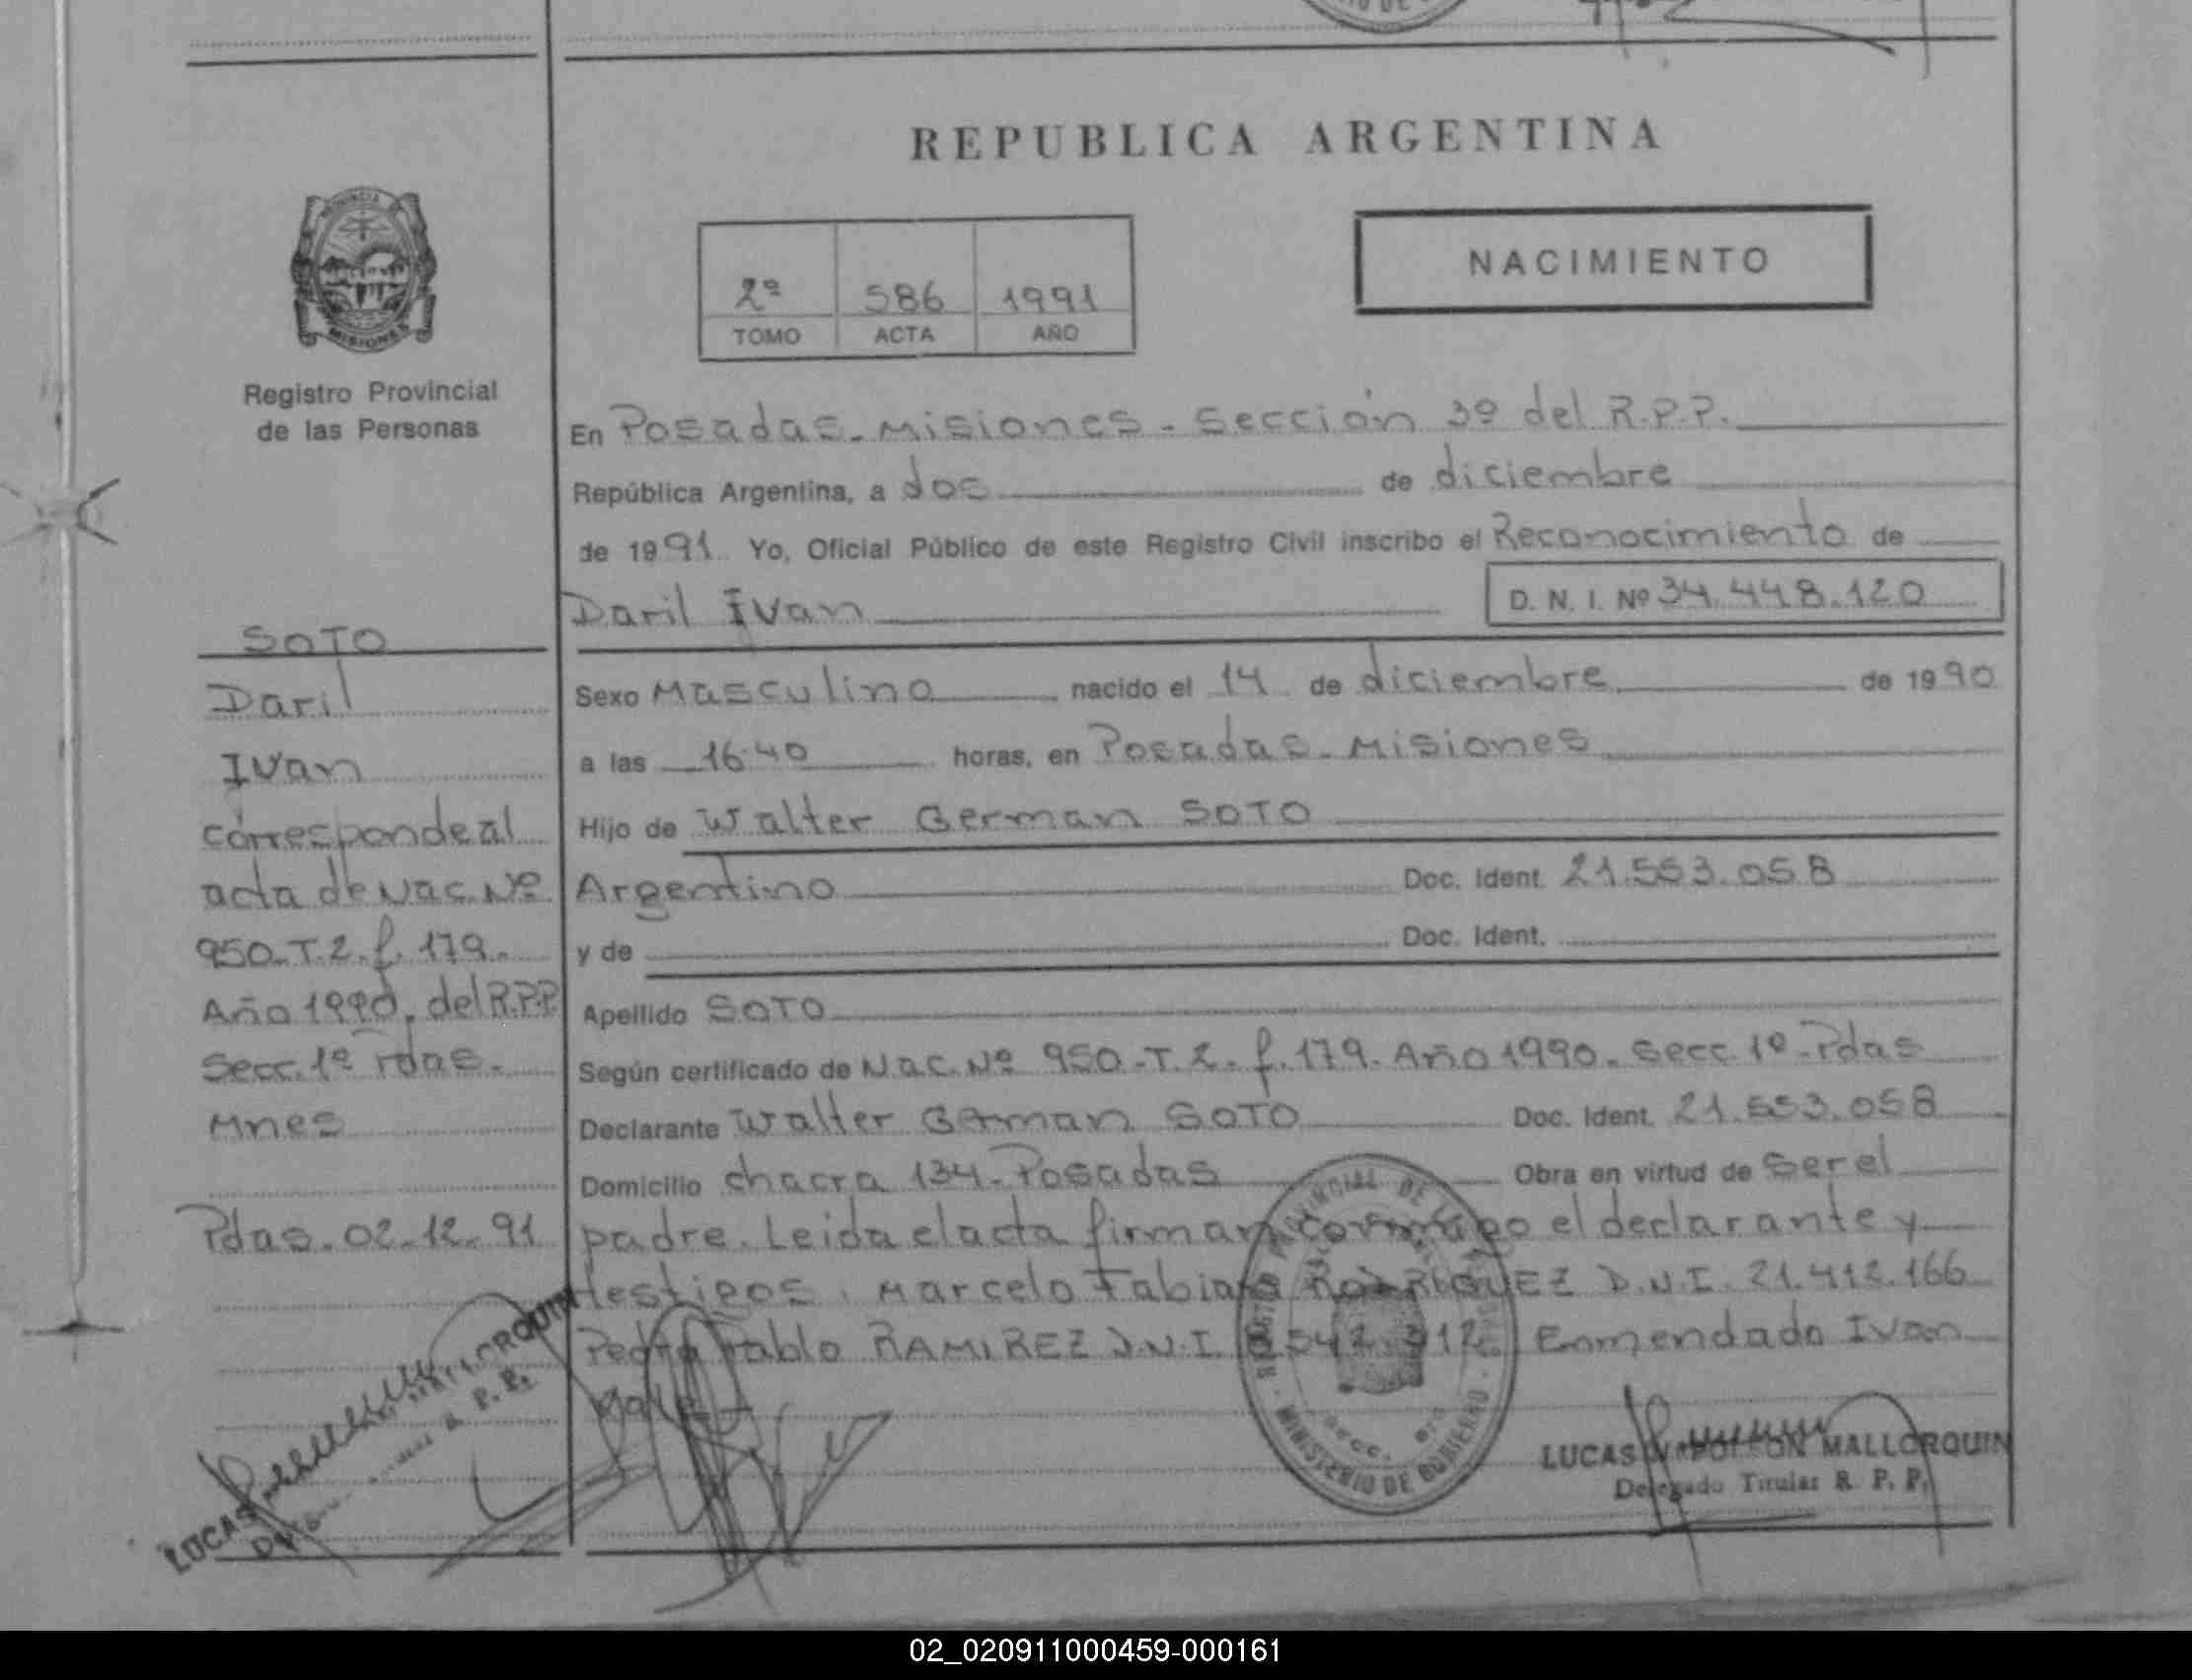 REPUBLICA ARGENTINA
NACIMIENTO
2º 586 1991
TOMO ACTA AÑO
MISIONES
Registro Provincial
de las Personas
SOTO
Daril
Ivan
corresponde al
acta de Nac. Nº
950-T.2.f.179.
Año 1990. del R.P.P.
Secc. 1º Pdas.
Mnes
Pdas. 02-12-91
En Posadas-Misiones-Sección 3º del R.P.P.
República Argentina, a dos de diciembre
de 1991 Yo, Oficial Público de este Registro Civil inscribo el Reconocimiento de
Daril Ivan D. N. I. Nº 34.448.120
Sexo Masculino nacido el 14 de diciembre de 1990
a las 16:40 horas, en Posadas-Misiones
Hijo de Walter German SOTO
Argentino Doc. Ident. 21.553.058
y de Doc. Ident.
Apellido SOTO
Según certificado de Nac. Nº 950-T.2-f.179. Año 1990. Secc 1º-Pdas
Declarante Walter German SOTO Doc. Ident. 21.553.058
Domicilio chacra 134-Posadas Obra en virtud de ser el
padre. Leida el acta firman conmigo el declarante y
testigos. Marcelo Fabian RODRIGUEZ D.N.I. 21.412.166
Pedro Pablo RAMIREZ D.N.I. Enmendado Ivan
Vale
MINISTERIO DE GOBIERNO
LUCAS NAPOLEON MALLORQUIN
Delegado Titular R. P. P.
LUCAS MALLORQUIN
R. P. P.
02_020911000459-000161